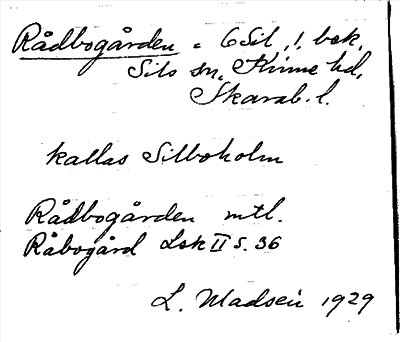 Rådbogården = 6 Sil, 1. bek.
Sils sn, Kinne hd,
Skarab. l.
kallas Silboholm
Rådbogården mtl.
Råbogård Lsk II s. 36
L. Madsen 1929